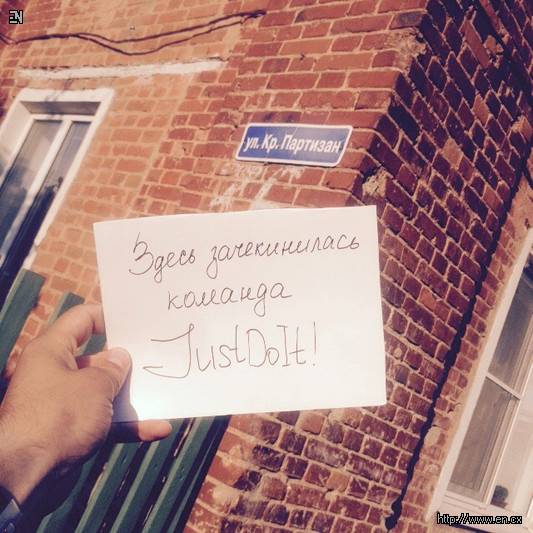 EN
ул. Кр. Партизан
Здесь зачекинилась
команда
JustDoIt!
http://www.en.cx